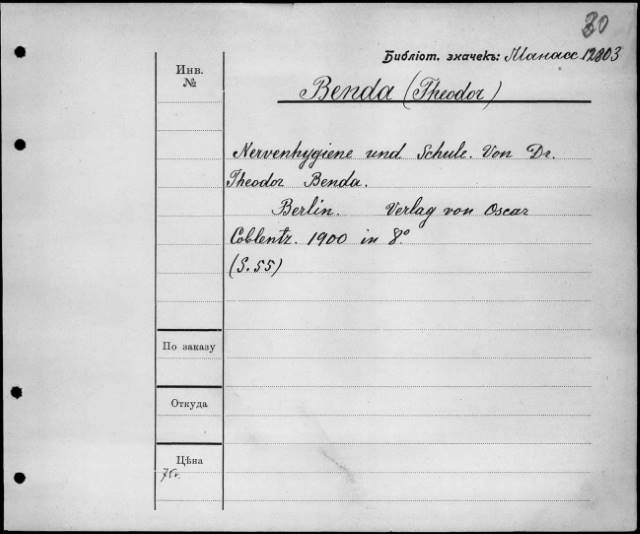 30
Библіот. значекъ: Манасс 12803
Инв.
№
Benda (Theodor)
Nervenhygiene und Schule. Von Dr.
Theodor Benda.
Berlin. Verlag von Oscar
Coblentz. 1900 in 8°
(S. 55)
По заказу
Откуда
Цѣна